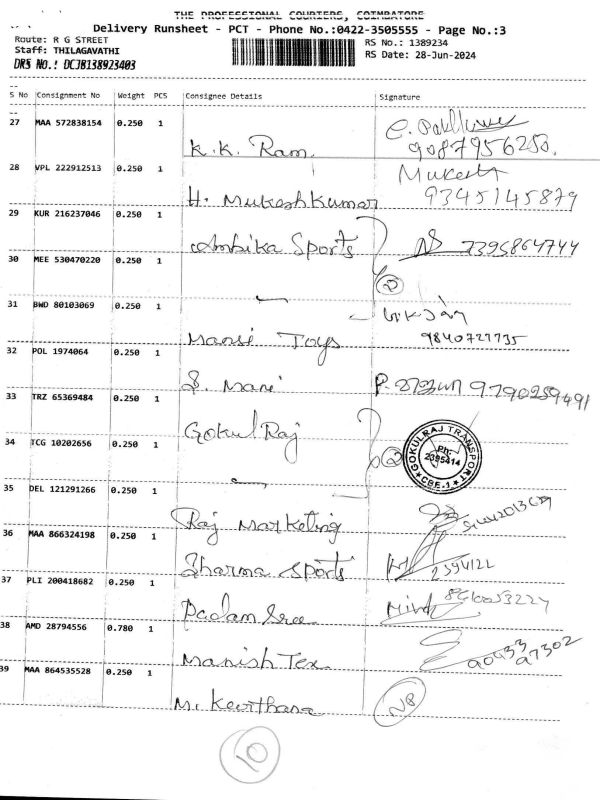 THE PROFESSIONAL COURIERS, COIMBATORE
Delivery Runsheet - PCT - Phone No.:0422-3505555 - Page No.:3
Route: R G STREET
RS No.: 1389234
Staff: THILAGAVATHI
RS Date: 28-Jun-2024
DRS No.: DCJB138923403
S No Consignment No Weight PCS Consignee Details Signature
27 MAA 572838154 0.250 1
K.K. Ram.
9087956250.
28 VPL 222912513 0.250 1
Mukesh
H. Mukesh Kumar 9345145879
29 KUR 216237046 0.250 1
Ambika Sports 7395864744
30 MEE 530470220 0.250 1
2
31 BWD 80103069 0.250 1
Mansi Toys 9840727735
32 POL 1974064 0.250 1
S. Mani 9790259491
33 TRZ 65369484 0.250 1
Gokul Raj
34 TCG 10202656 0.250 1
2
GOKULRAJ TRANSPORT
PH: 2395414
CBE-1
35 DEL 121291266 0.250 1
Raj Marketing
36 MAA 866324198 0.250 1
Sharma Sports
37 PLI 200418682 0.250 1
Padam Sree
38 AMD 28794556 0.780 1
Manish Tex
39 MAA 864535528 0.250 1
M. Keerthana NP
10